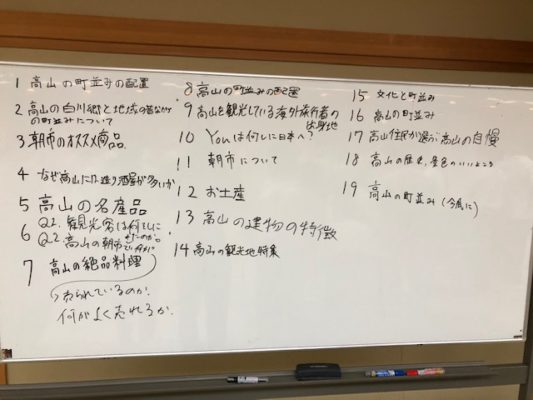 1 高山の町並みの配置
2 高山の白川郷と地域の昔ながら
の町並みについて
3 朝市のオススメ商品
4 なぜ高山には造り酒屋が多いか
5 高山の名産品
6 Q1. 観光客は何をしに
Q2. 高山の朝市
7 高山の絶品料理
売られているのか?
何がよく売れるか?
8 高山の町並みの配置
9 高山を観光している海外旅行者の
出身地
10 Youは何しに日本へ?
11 朝市について
12 お土産
13 高山の建物の特徴
14 高山の観光地特集
15 文化と町並み
16 高山の町並み
17 高山住民が選ぶ高山の自慢
18 高山の歴史、景色のいいところ
19 高山の町並み(今風に)